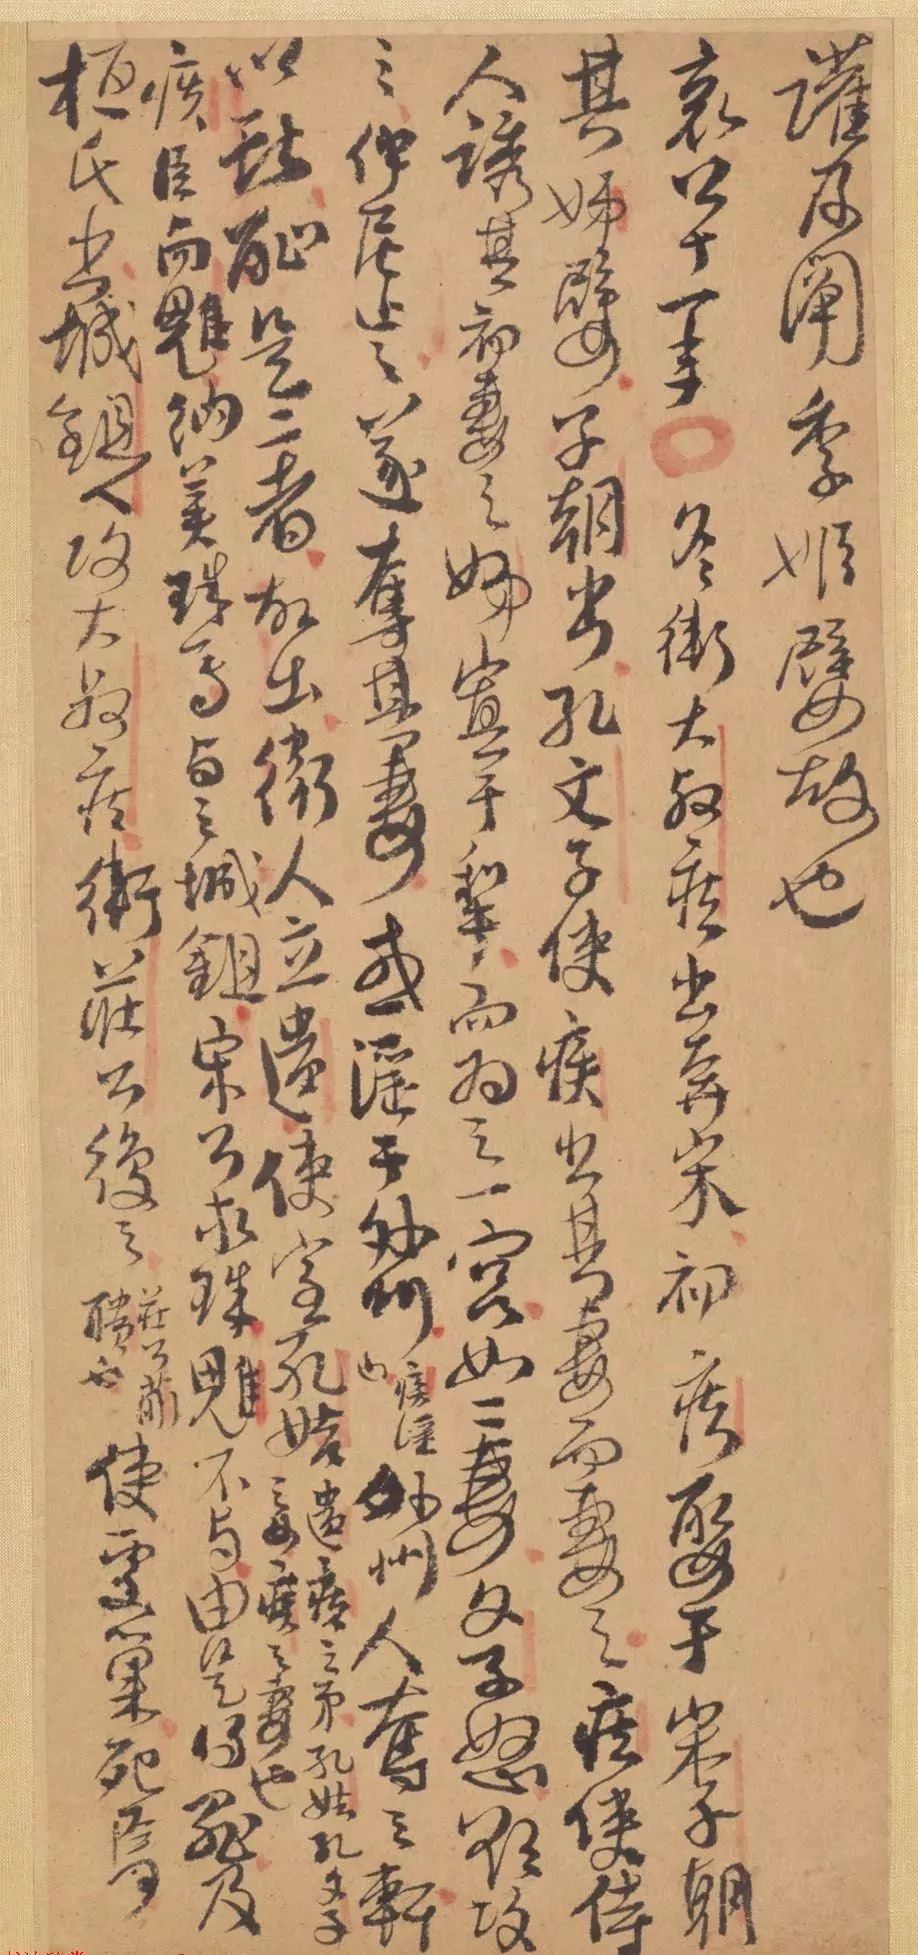 讙及闡季姬嬖故也
哀公十一年冬衛大叔疾出奔宋初疾娶于宋子朝
其娣嬖子朝出孔文子使疾出其妻而妻之疾使侍
人誘其初妻之娣寘于犁而為之一宮如二妻文子怒欲攻
之仲尼止之遂奪其妻或淫于外州疾淫也外州人奪之軒
以獻恥是二者故出衛人立遺使室孔姞遺疾之弟孔姞孔文子之女疾之妻也
疾臣向魋納美珠焉与之城鉏宋公求珠魋不与由是得罪及
桓氏出城鉏人攻大叔疾衛莊公復之莊公蒯聵也使處巢死焉